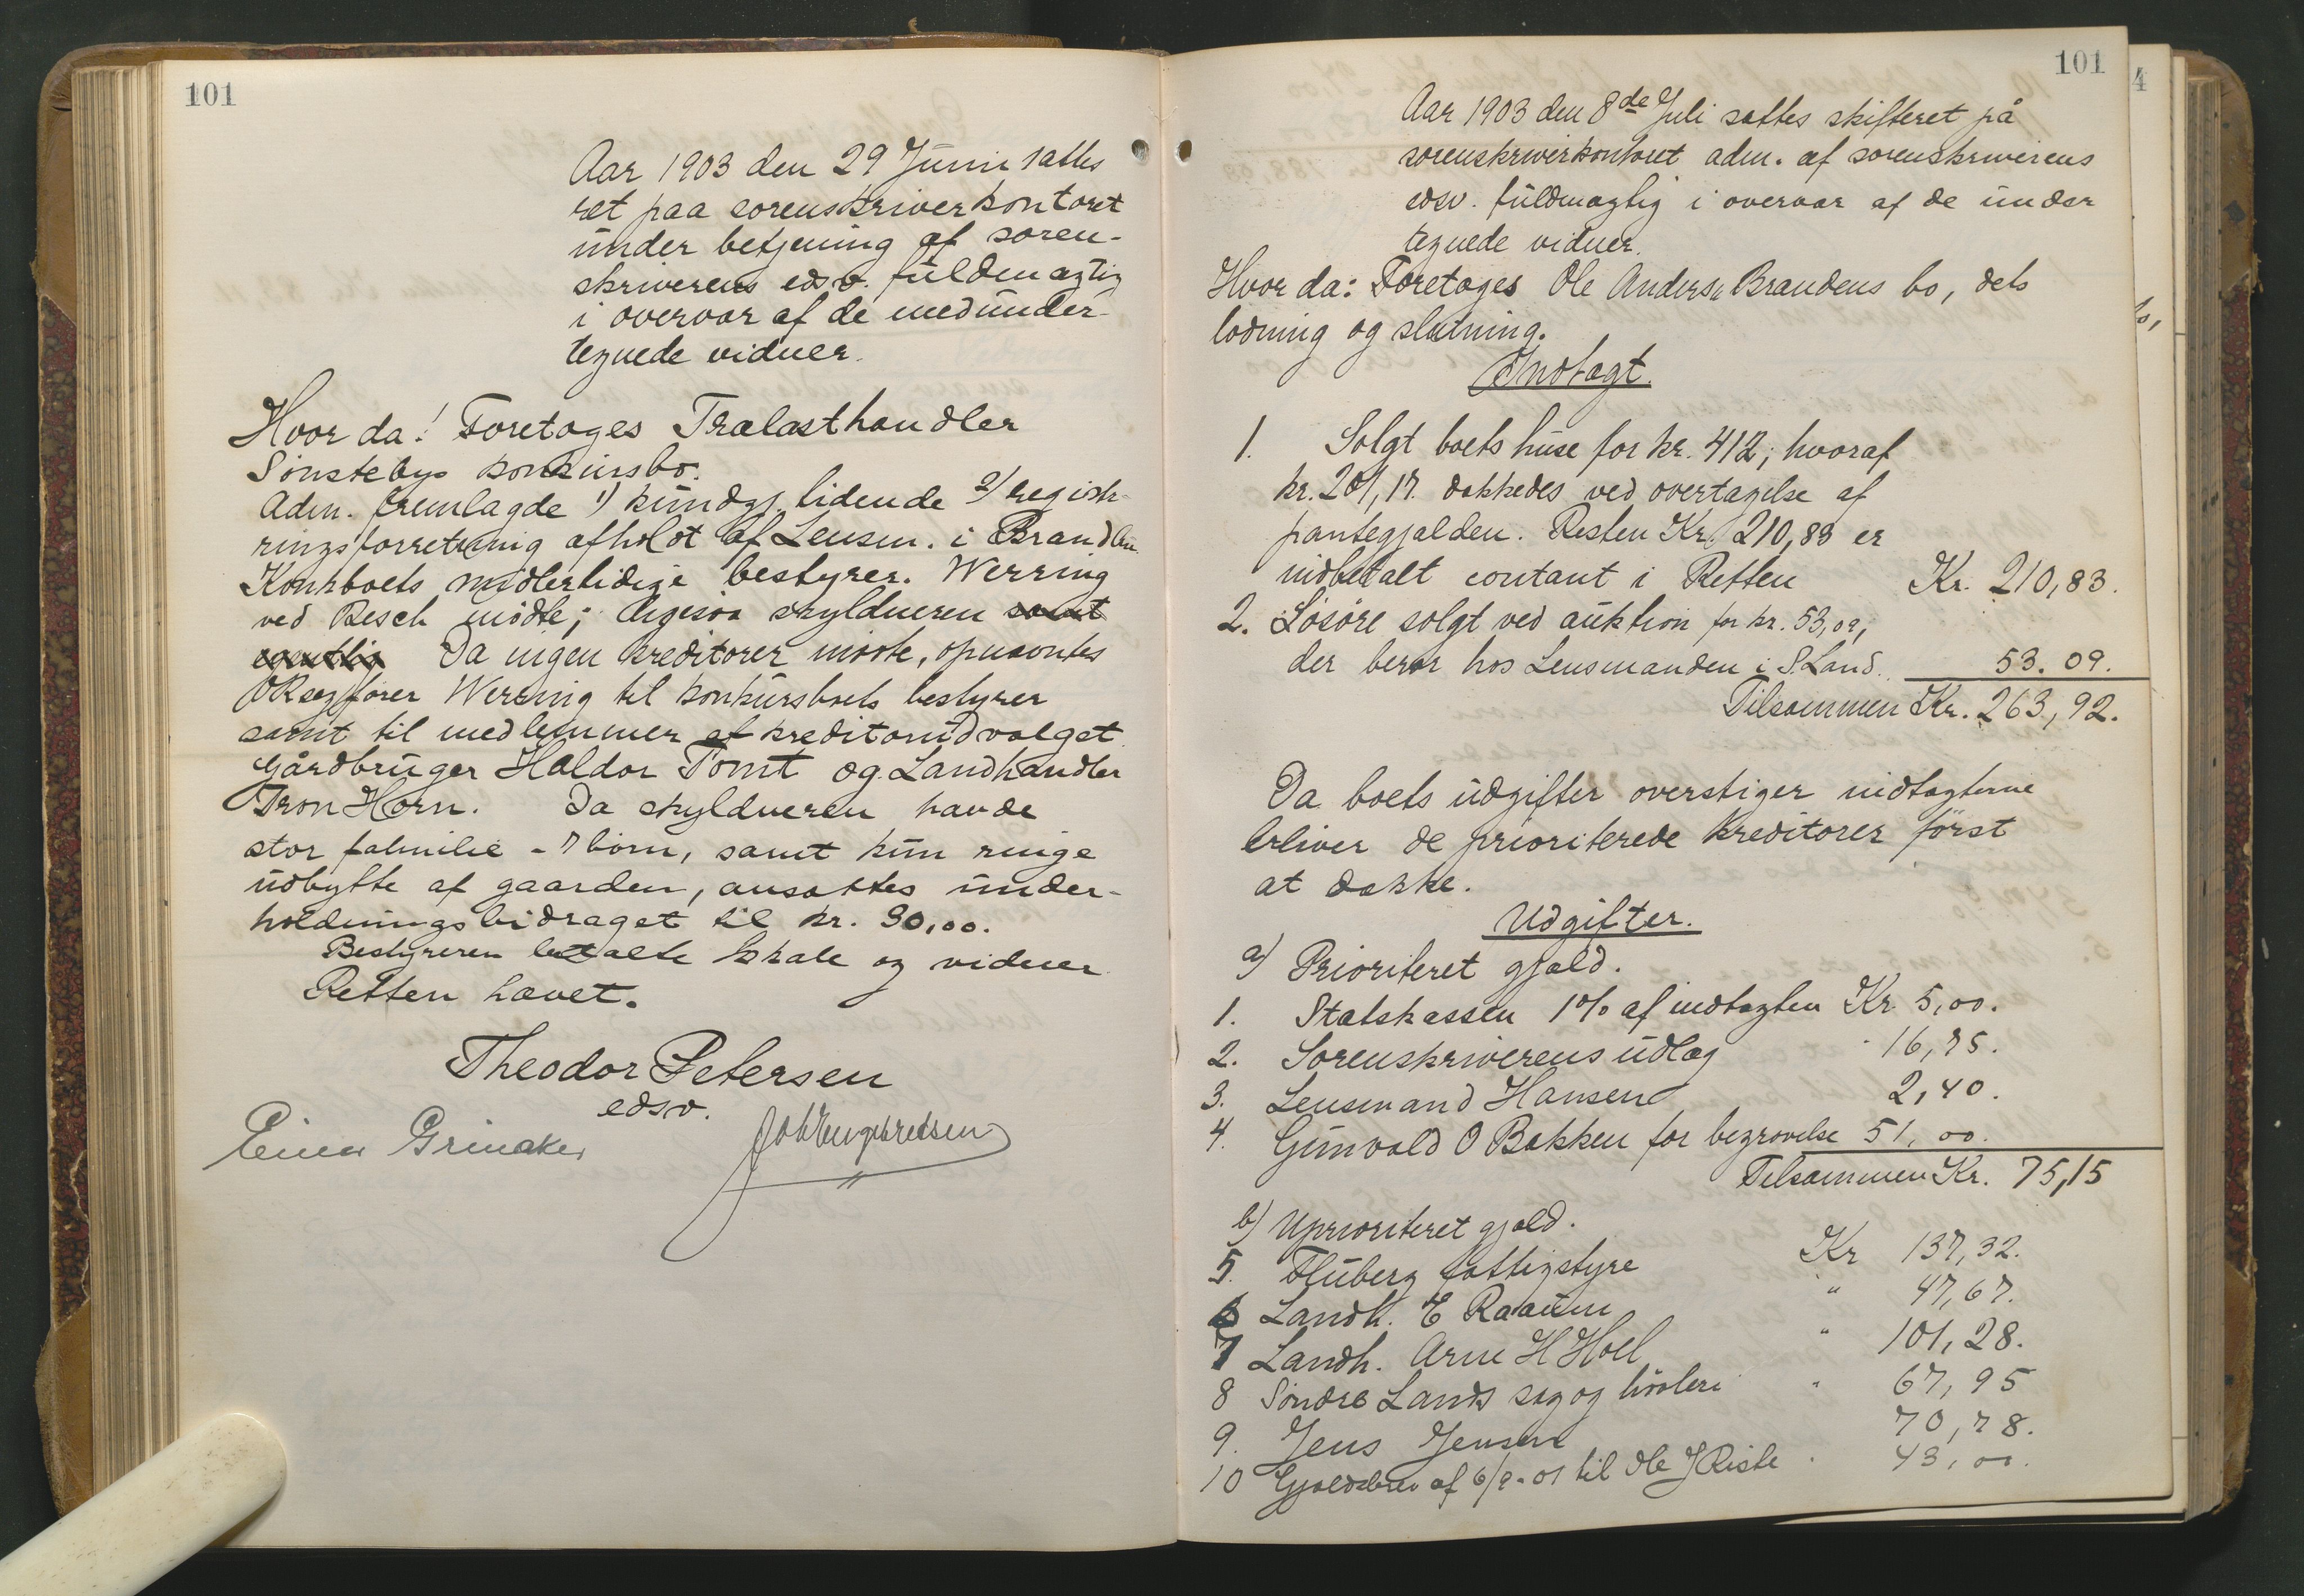 101
Aar 1903 den 29 Juni sattes
ret paa sorenskriverkontoret
under betjening af soren-
skriverens edsv. fuldmægtig
i overvær af de medunder-
tegnede vidner.
Hvor da! Foretoges Trælasthandler
Sönstebys konkursbo.
Adm. fremlagde 1) kundgj. tidende 2) registr-
ringsforretning afholdt af Lensm. i Brandbu
Konkboets midlertidige bestyrer. Werring
ved Resch mödte; ligesaa skyldneren samt
egentlig Da ingen kreditorer mödte, opnævntes
ORsagförer Werring til konkursboets bestyrer
samt til medlemmer af kreditorudvalget
Gårdbruger Haldor Tomt og Landhandler
Tron Horn. Da skyldneren havde
stor familie - 7 börn, samt kun ringe
udbytte af gaarden, ansattes under-
holdningsbidraget til kr. 30,00.
Bestyreren betalte lokale og vidner
Retten hævet.
Theodor Petersen
edsv.
Einar Grinaker
Joh Engebretsen
101
4
Aar 1903 den 8de Juli sattes skifteret på
sorenskriverkontoret adm. af sorenskriverens
edsv. fuldmægtig i overvær af de under
tegnede vidner.
Hvor da: Foretoges Ole Anders. Brandens bo, dets
lodning og slutning.
Indtægt.
1. Solgt boets huse for kr. 412; hvoraf
kr. 201,17. dækkedes ved overtagelse af
pantegjælden. Resten Kr. 210,83 er
indbetalt contant i Retten Kr. 210,83.
2. Lösöre solgt ved auktion for kr. 53,09,
der beror hos Lensmanden i S. Land. 53.09.
Tilsammen Kr. 263,92.
Da boets udgifter overstiger indtægterne
bliver de prioriterede kreditorer först
at dække.
Udgifter.
a) Prioriteret gjæld.
1. Statskassen 1% af indtægten Kr 5,00.
2. Sorenskriverens udlæg " 16,75.
3. Lensmand Hansen 2,40.
4. Gunvald O Bakken for begravelse 51,00.
Tilsammen Kr. 75,15
b) Uprioriteret gjæld.
5. Fluberg fattigstyre Kr 137,32.
6 Landh. E Raaum " 47,67.
7 Landh. Arne H Hoel " 101,28.
8 Söndre Lands sag og hövleri " 67,95
9. Jens Jensen 70,78.
10 Gjældsbrev af 6/9-01 til Ole J Riste " 43,00.